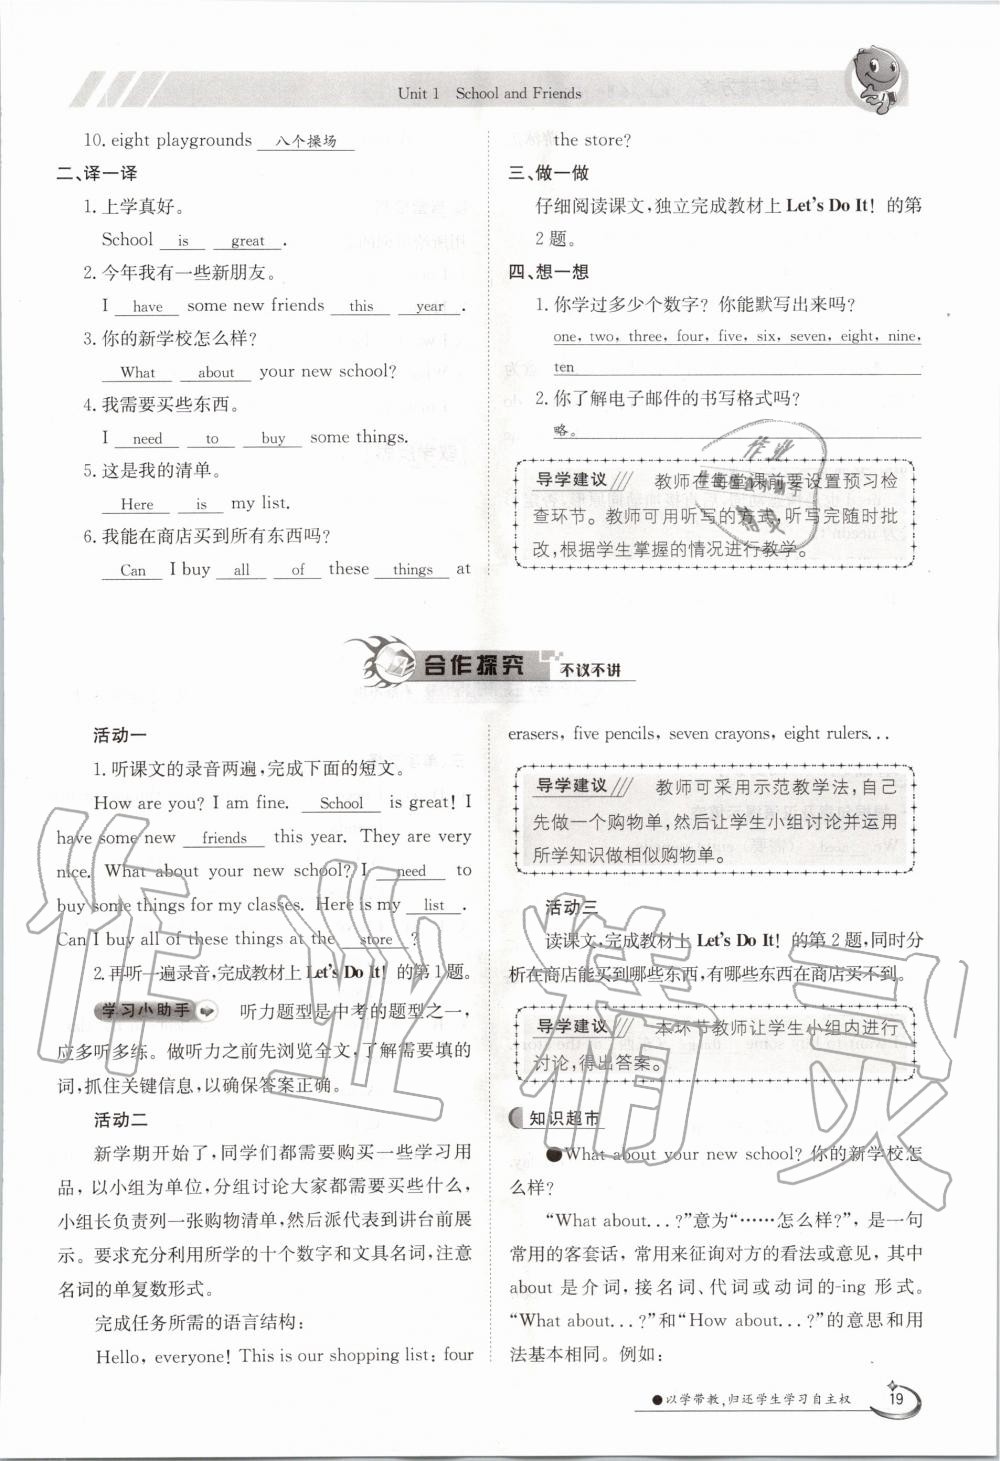 Unit 1 School and Friends
10. eight playgrounds 八个操场
二、译一译
1. 上学真好。
School is great .
2. 今年我有一些新朋友。
I have some new friends this year .
3. 你的新学校怎么样?
What about your new school?
4. 我需要买些东西。
I need to buy some things.
5. 这是我的清单。
Here is my list.
6. 我能在商店买到所有东西吗?
Can I buy all of these things at
the store?
三、做一做
仔细阅读课文,独立完成教材上 Let's Do It! 的第
2 题。
四、想一想
1. 你学过多少个数字? 你能默写出来吗?
one, two, three, four, five, six, seven, eight, nine,
ten
2. 你了解电子邮件的书写格式吗?
略。
导学建议 教师在每堂课前要设置预习检
查环节。教师可用听写的方式,听写完随时批
改,根据学生掌握的情况进行教学。
合作探究 不议不讲
活动一
1. 听课文的录音两遍,完成下面的短文。
How are you? I am fine. School is great! I
have some new friends this year. They are very
nice. What about your new school? I need to
buy some things for my classes. Here is my list .
Can I buy all of these things at the store ?
2. 再听一遍录音,完成教材上 Let's Do It! 的第 1 题。
学习小助手 听力题型是中考的题型之一,
应多听多练。做听力之前先浏览全文,了解需要填的
词,抓住关键信息,以确保答案正确。
活动二
新学期开始了,同学们都需要购买一些学习用
品,以小组为单位,分组讨论大家都需要买些什么,
小组长负责列一张购物清单,然后派代表到讲台前展
示。要求充分利用所学的十个数字和文具名词,注意
名词的单复数形式。
完成任务所需的语言结构:
Hello, everyone! This is our shopping list: four
erasers, five pencils, seven crayons, eight rulers...
导学建议 教师可采用示范教学法,自己
先做一个购物单,然后让学生小组讨论并运用
所学知识做相似购物单。
活动三
读课文,完成教材上 Let's Do It! 的第 2 题,同时分
析在商店能买到哪些东西,有哪些东西在商店买不到。
导学建议 本环节教师让学生小组内进行
讨论,得出答案。
知识超市
●What about your new school? 你的新学校怎
么样?
“What about...?”意为“……怎么样?”,是一句
常用的客套话,常用来征询对方的看法或意见,其中
about 是介词,接名词、代词或动词的-ing 形式。
“What about...?”和“How about...?”的意思和用
法基本相同。例如:
●以学带教,归还学生学习自主权 19
作业精灵